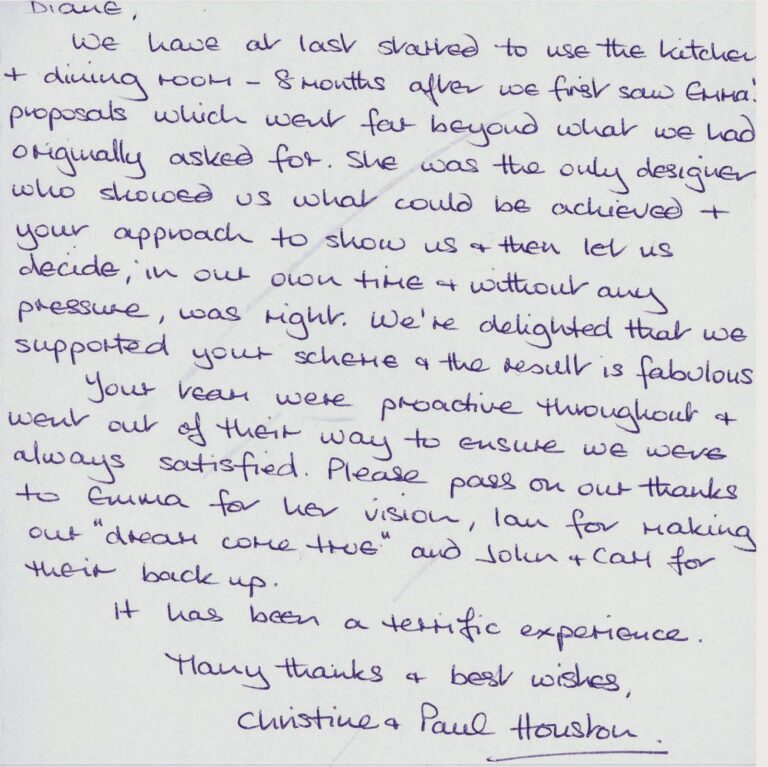 Diane,
We have at last started to use the kitchen
+ dining room – 8 months after we first saw Emma's
proposals which went far beyond what we had
originally asked for. She was the only designer
who showed us what could be achieved +
your approach to show us + then let us
decide, in our own time + without any
pressure, was right. We're delighted that we
supported your scheme + the result is fabulous
Your team were proactive throughout +
went out of their way to ensure we were
always satisfied. Please pass on our thanks
to Emma for her vision, Ian for making
our "dream come true" and John + Carl for
their back up.
It has been a terrific experience.
Many thanks + best wishes,
Christine + Paul Houston.